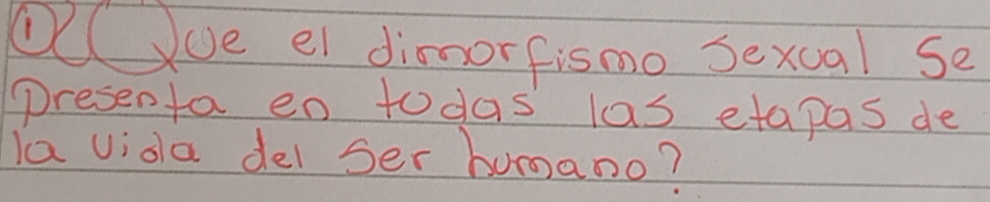 ① ¿Que el dimorfismo sexual se
presenta en todas las etapas de
la vida del ser humano?